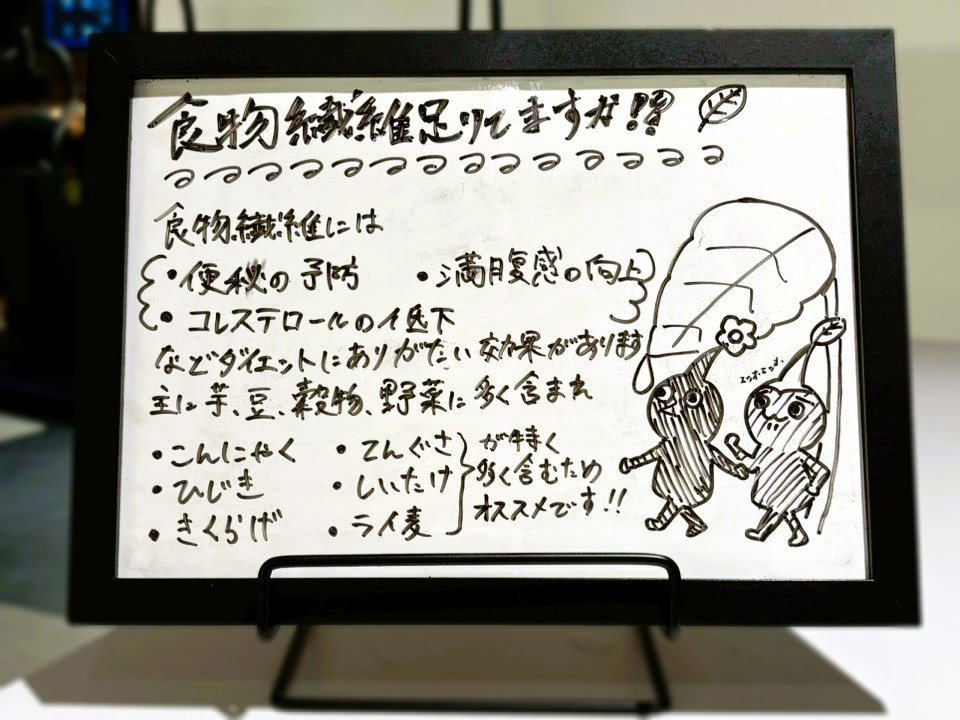 食物繊維足りてますか!!?
食物繊維には
・便秘の予防 ・満腹感の向上
・コレステロールの低下
などダイエットにありがたい効果があります
主に芋、豆、穀物、野菜に多く含まれ
・こんにゃく ・てんぐさ
・ひじき ・しいたけ
・きくらげ ・ライ麦
が特に
多く含むため
オススメです!!